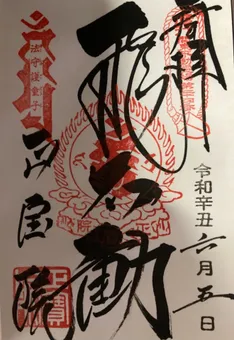 奉拝
令和辛丑六月五日
飛不動
法守護童子
正宝院